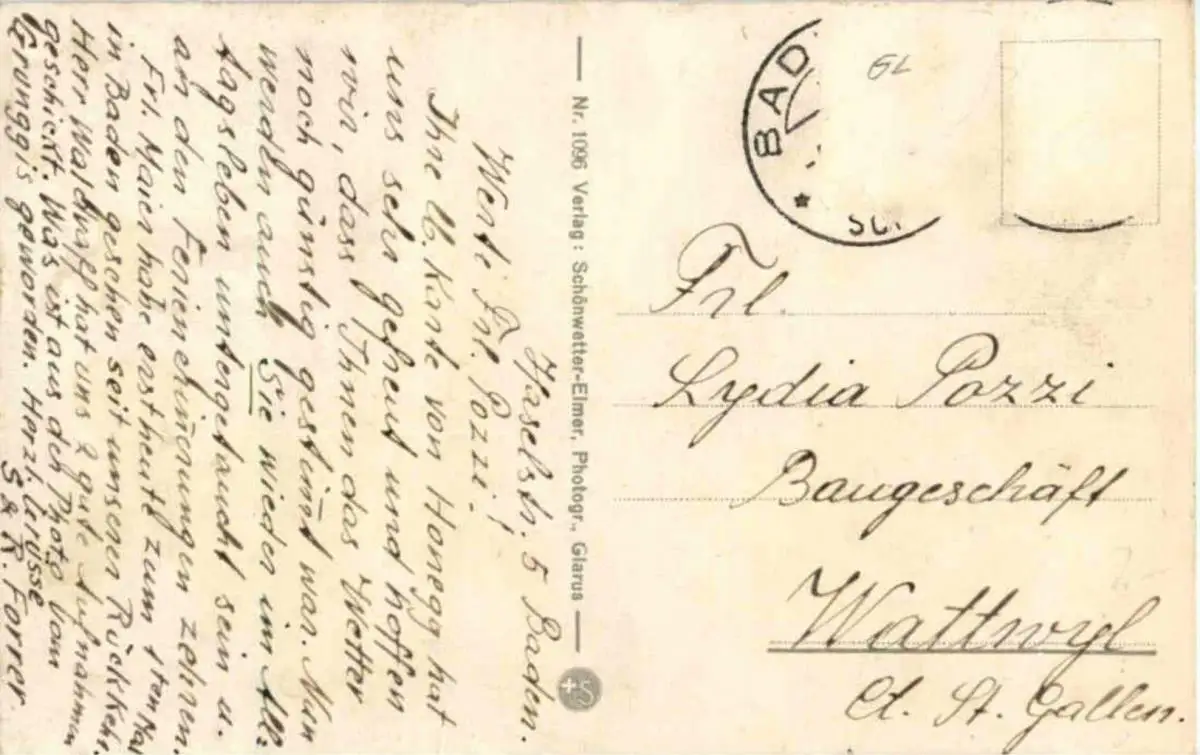 Haselstr. 5 Baden.
Werte Frl. Pozzi!
Ihre lb. Karte von Honegg hat
uns sehr gefreut und hoffen
wir, dass Ihnen das Wetter
noch günstig gestimt war. Nun
werden auch Sie wieder im All-
tagsleben untergetaucht sein u.
an den Ferienerinnerungen zehren.
Frl. Maier habe erst heute zum 1ten Mal
in Baden gesehen seit unserer Rückkehr.
Herr hat uns 2 gute Aufnahmen
geschickt. Was ist aus der Photo vom
geworden. Herzl. Grüsse
S & R. Forrer
Nr. 1096 Verlag: Schönwetter-Elmer, Photogr., Glarus
BAD
SC
GL
Frl.
Lydia Pozzi
Baugeschäft
Wattwyl
Ct. St. Gallen.